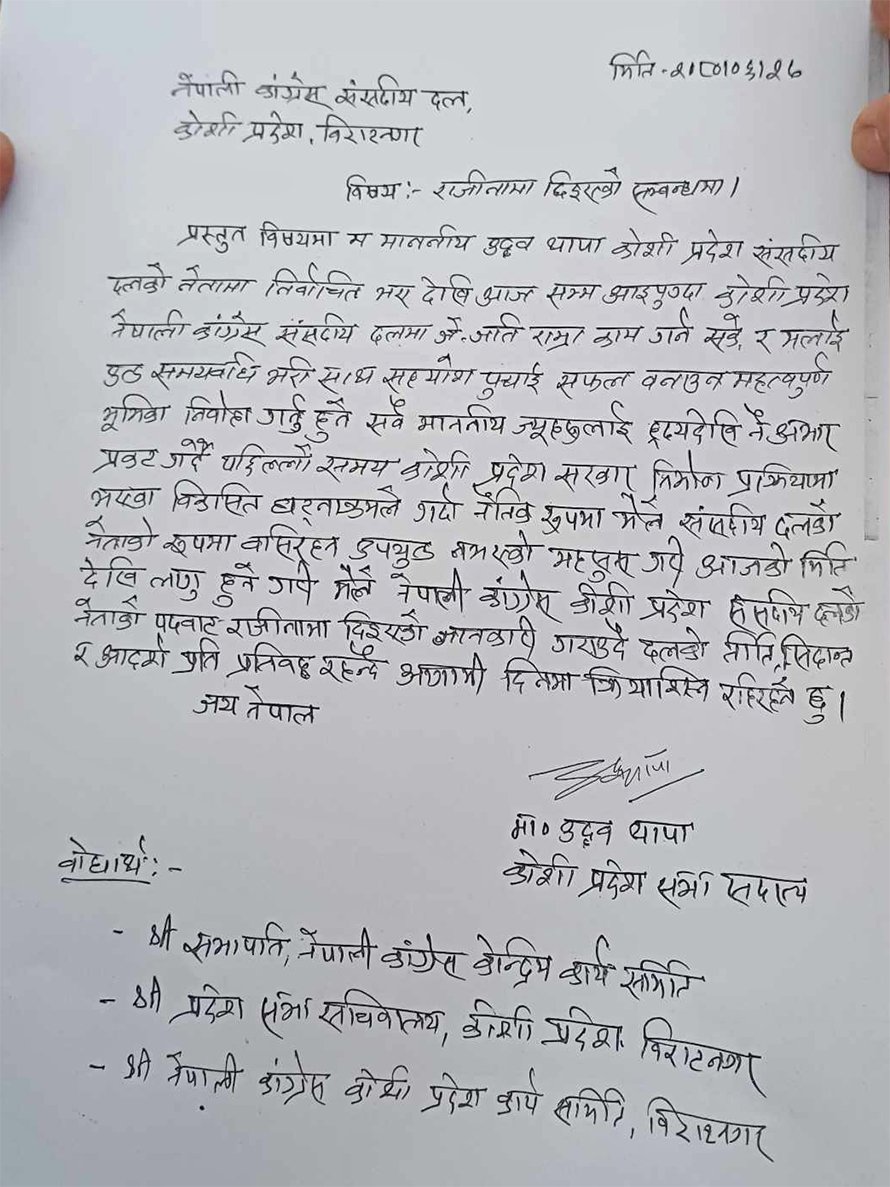 मिति - २०८०।०६।२७
नेपाली कांग्रेस संसदीय दल,
कोशी प्रदेश, विराटनगर
विषय :- राजीनामा दिइएको सम्वन्धमा।
प्रस्तुत विषयमा म माननीय उद्धव थापा कोशी प्रदेश संसदीय
दलको नेतामा निर्वाचित भए देखि आज सम्म आइपुग्दा कोशी प्रदेश
नेपाली कांग्रेस संसदीय दलमा जे-जति राम्रा काम गर्न सकें, र मलाई
उक्त समयावधि भरी साथ सहयोग पुर्‍याई सफल वनाउन महत्वपुर्ण
भूमिका निर्वाह गर्नु हुने सवै माननीय ज्यूहरुलाई हृदयदेखि नै आभार
प्रकट गर्दै पछिल्लो समय कोशी प्रदेश सरकार निर्माण प्रक्रियामा
भएका विकासित घटनाक्रमले गर्दा नैतिक रूपमा मैले संसदीय दलको
नेताको रूपमा वसिरहन उपयुक्त नभएको महसुस गरी आजको मिति
देखि लागु हुने गरी मैले नेपाली कांग्रेस कोशी प्रदेश संसदीय दलको
नेताको पदवाट राजीनामा दिइएको जानकारी गराउदै दलको नीति, सिद्धान्त
र आदर्श प्रति प्रतिवद्ध रहन्दै आगामी दिनमा क्रियाशिल रहिरहने छु।
जय नेपाल
मा० उद्धव थापा
कोशी प्रदेश सभा सदस्य
वोधार्थ :-
- श्री सभापति, नेपाली कांग्रेस केन्द्रिय कार्य समिति
- श्री प्रदेश सभा सचिवालय, कोशी प्रदेश विराटनगर
- श्री नेपाली कांग्रेस कोशी प्रदेश कार्य समिति, विराटनगर